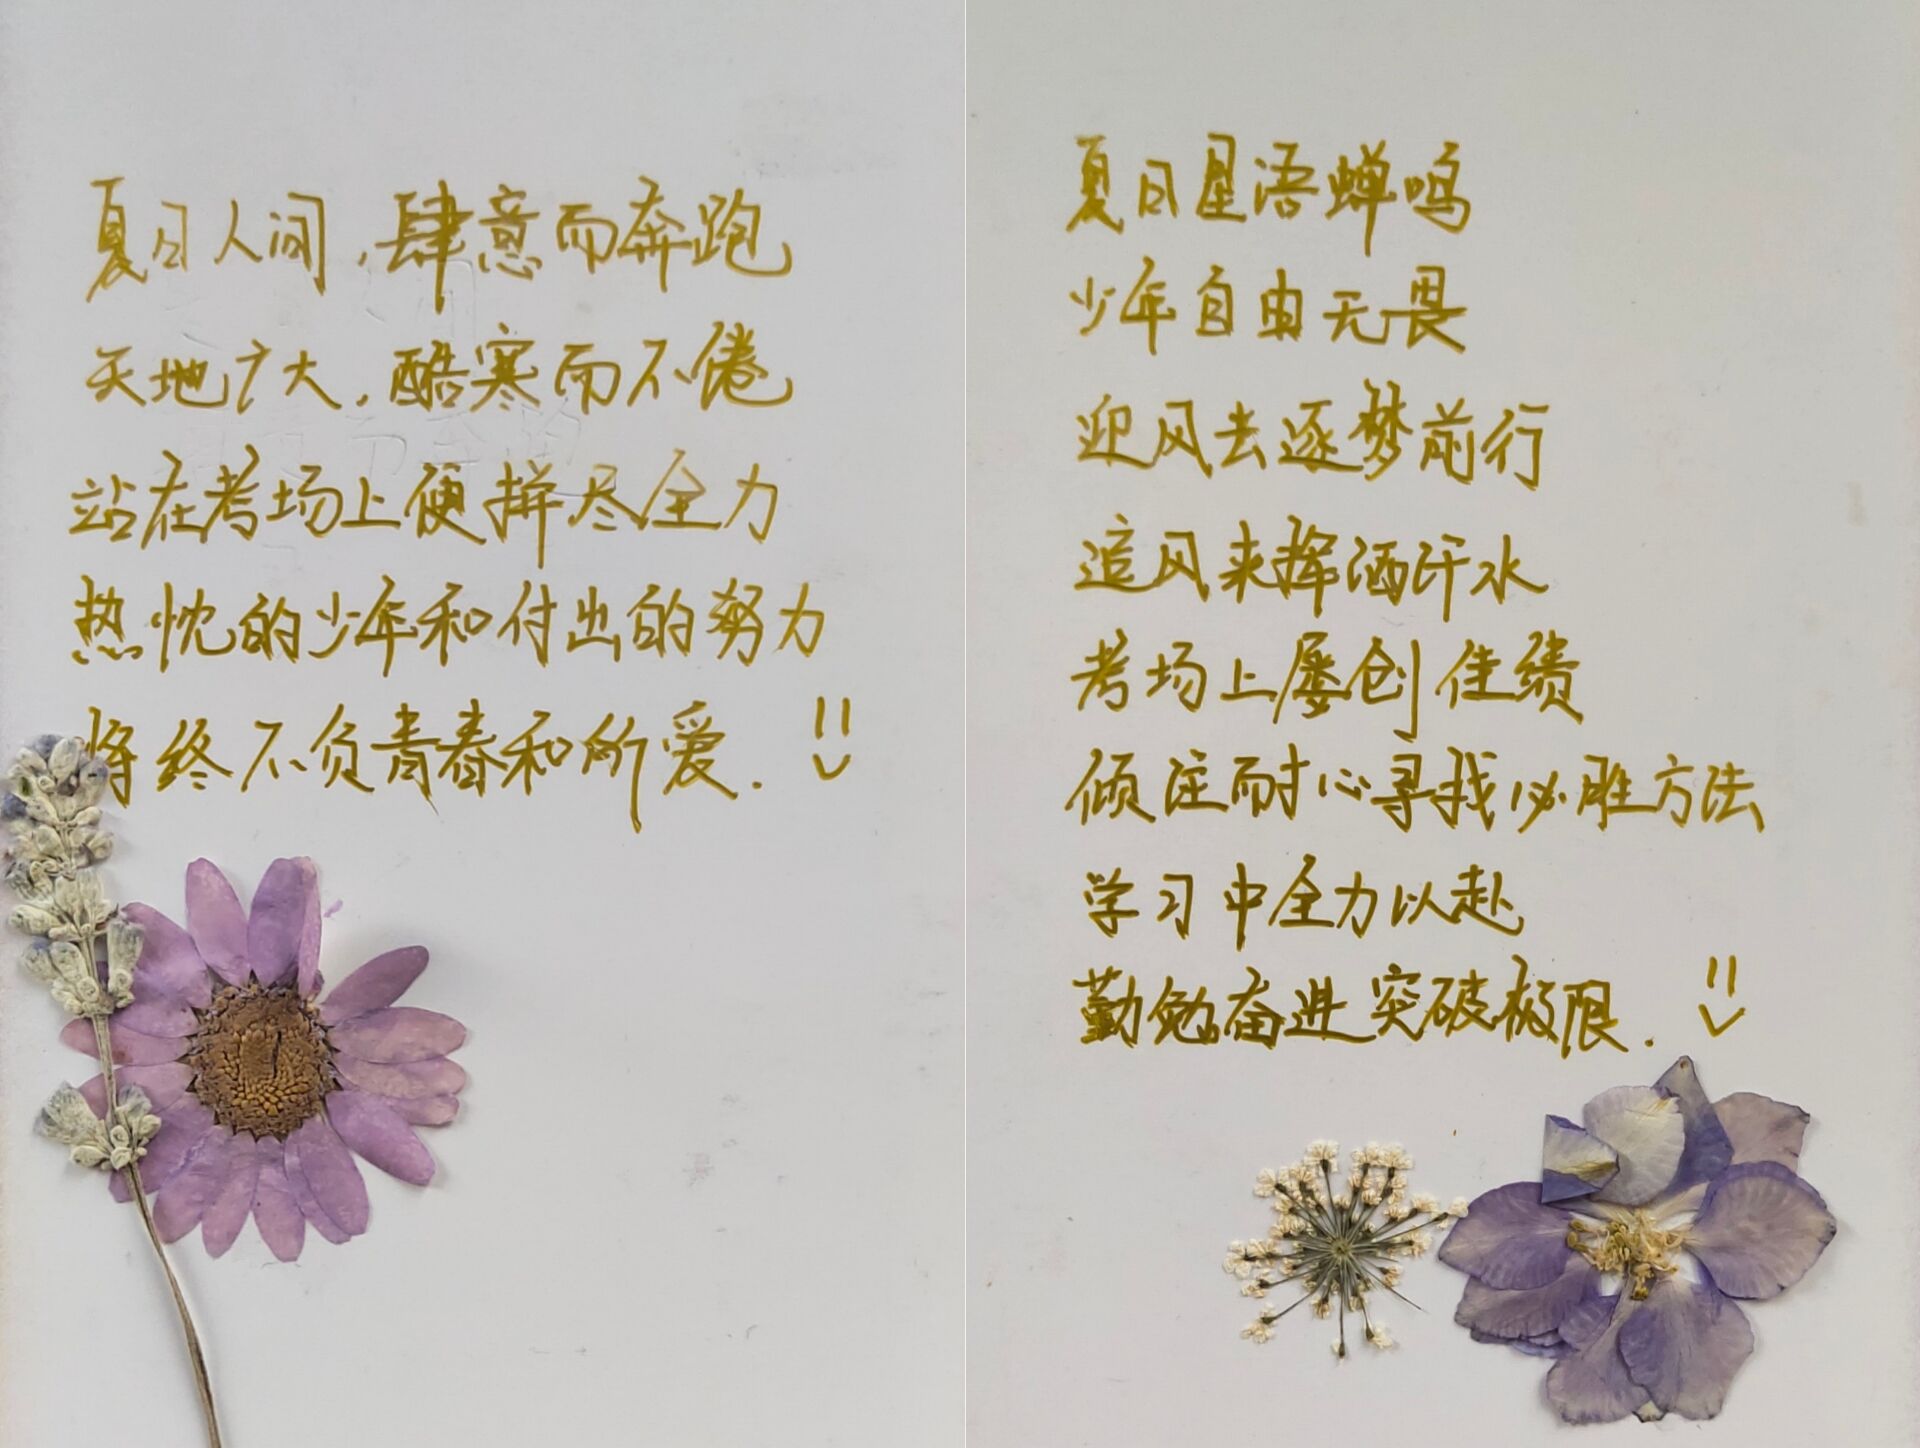 夏日人间,肆意而奔跑
天地广大,酷寒而不倦
站在考场上便拼尽全力
热忱的少年和付出的努力
将终不负青春和所爱.
夏日星语蝉鸣
少年自由无畏
迎风去逐梦前行
追风来挥洒汗水
考场上屡创佳绩
倾注耐心寻找必胜方法
学习中全力以赴
勤勉奋进突破极限.